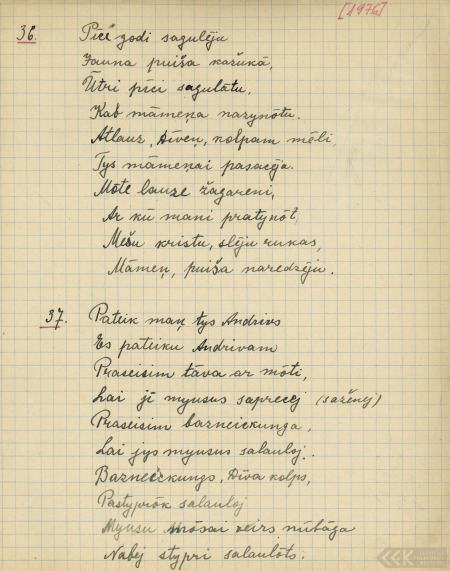 [1976]
36. Pīci godi sagulēju
Jauna puiša kažukā,
Ūtri pīci sagulātu,
Kab māmeņa nazynōtu.
Atlauz, Dīveņ, kolpam mēli,
Tys māmeņai pasacēja.
Mōte lauze žagareni,
Ar kū mani pratynōt,
Mešu kristu, slēju rukas,
Māmeņ, puiša naredzēju.
37. Pateik maņ tys Andrivs
Es pateiku Andrivam
Praseisim tāva ar mōti,
Lai jī myusus saprecej (saženej)
Praseisim bazneickunga,
Lai jys myusus salauloj.
Bazneickungs, Dīva kolps,
Pastyprōk salauloj
Myusu mōsai veirs nūbāga
Nabej stypri salaulōts.